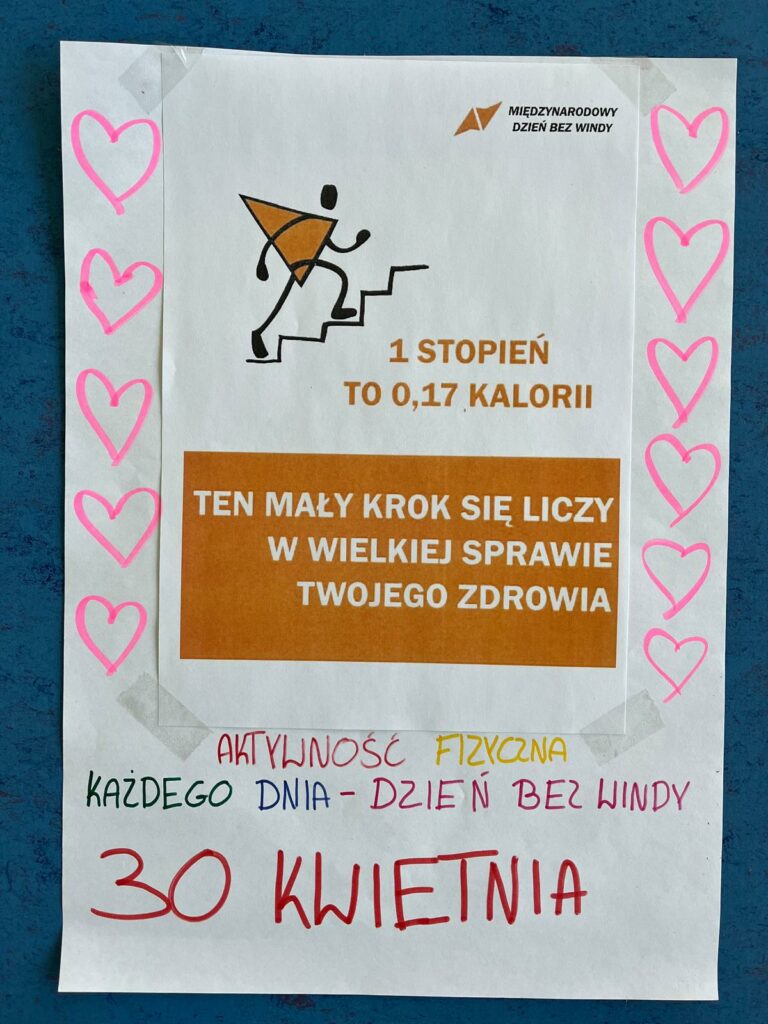 MIĘDZYNARODOWY
DZIEŃ BEZ WINDY
1 STOPIEŃ
TO 0,17 KALORII
TEN MAŁY KROK SIĘ LICZY
W WIELKIEJ SPRAWIE
TWOJEGO ZDROWIA
AKTYWNOŚĆ FIZYCZNA
KAŻDEGO DNIA - DZIEŃ BEZ WINDY
30 KWIETNIA